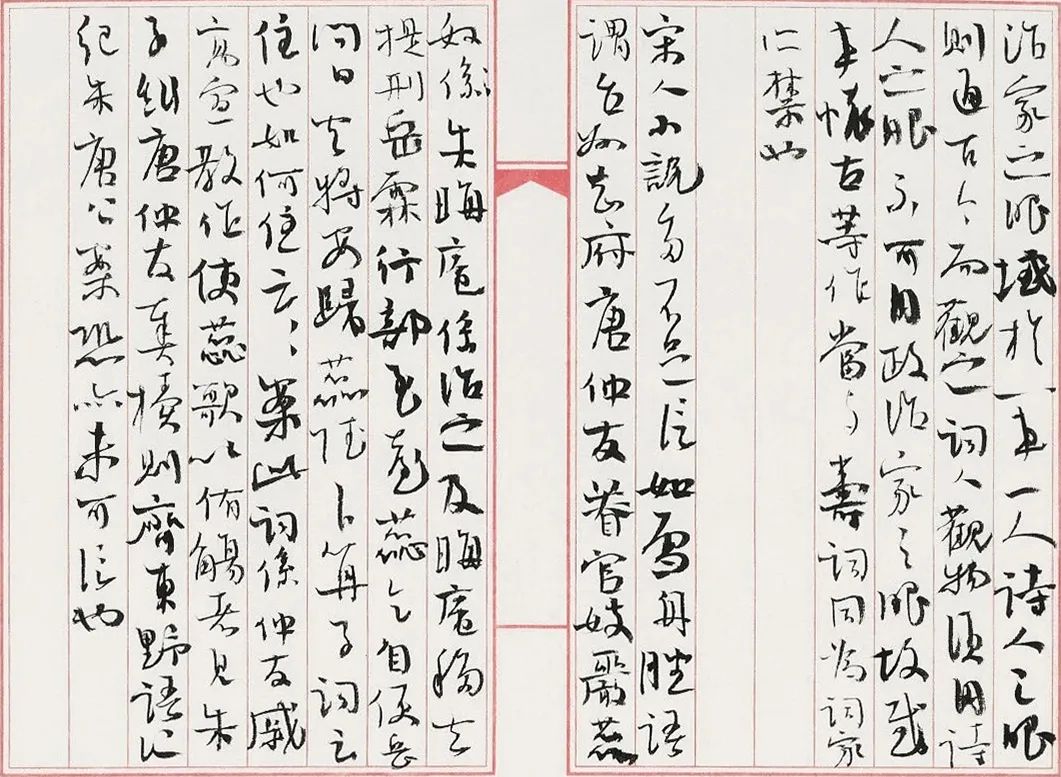 治家之眼域於一事一人詩人之眼
則通古今而觀之詞人觀物須用詩
人之眼不可用政治家之眼故感
事懷古等作當与壽詞同為詞家
所禁也
宋人小說多不足信如雪舟脞語
謂台州知府唐仲友眷官妓嚴蕊
奴係朱晦庵係治之及晦庵移去
提刑岳霖行部至臺蕊乞自便岳
問曰去將安歸蕊賦卜算子詞云
住也如何住云々案此詞係仲友戚
高宣教作使蕊歌以侑觴者見朱
子糾唐仲友奏牘則齊東野語所
紀朱唐公案恐亦未可信也